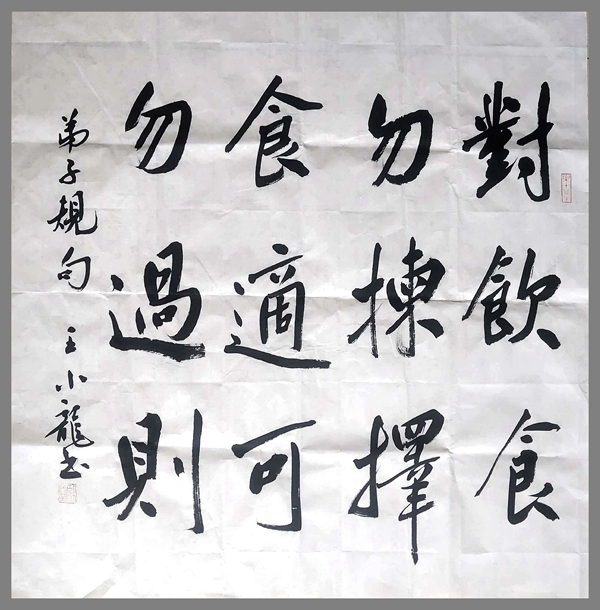 對飲食
勿揀擇
食適可
勿過則
弟子規句 王小龍书